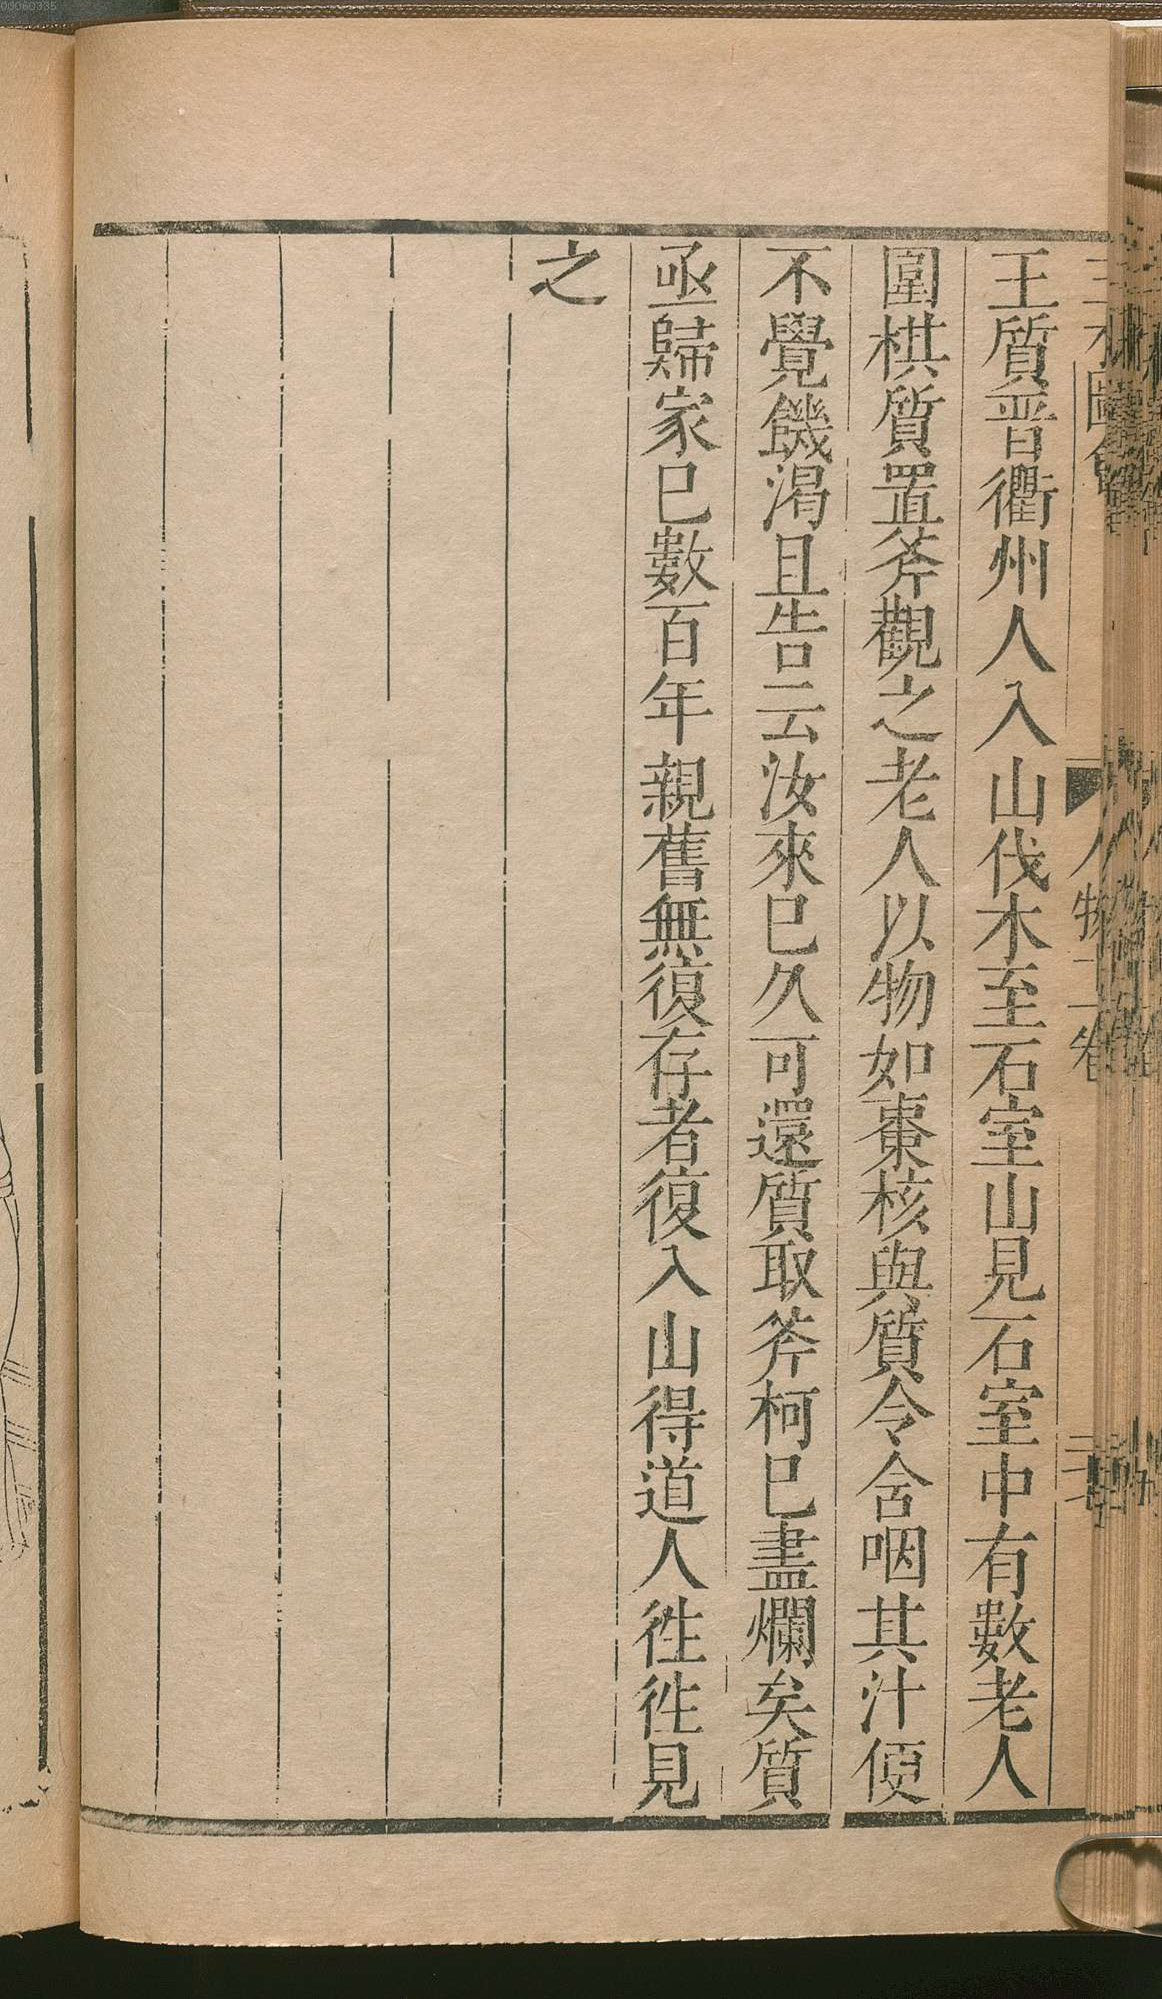 王質晋衢州人入山伐木至石室山見石室中有數老人
圍棋質置斧觀之老人以物如棗核與質令含咽其汁便
不覺饑渴且告云汝來巳久可還質取斧柯巳盡爛矣質
亟歸家巳數百年親舊無復存者復入山得道人徃徃見
之
人物十一卷
00060335